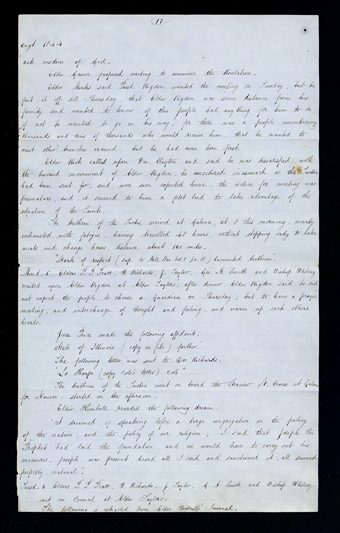 17
Augt 1844
ask wisdom of God.
Elder Grover proposed waiting to examine the Revelation.
Elder Marks said Prest. Rigdon wanted the meeting on Tuesday, but he
put it off till Thursday, that Elder Rigdon was some distance from his
family and wanted to know if this people had anything for him to do
if not he wanted to go on his way, for there was a people numbering
thousands and tens of thousands who would receive him, that he wanted to
visit other branches around but he had come here first.
Elder Rich called upon Wm. Clayton and said he was dissatisfied with
the hurried movement of Elder Rigdon, he considered inasmuch as the Twelve
had been sent for, and were soon expected home, the notice for meeting was
premature, and it seemed to him a plot laid to take advantage of the
situation of the Saints.
The brethren of the Twelve arrived at Galena, at 8 this morning, nearly
exhausted with fatigue, having travelled 48 hours without stopping only to take
meals and change horses distance about 160 miles.
"Mark of respect (cop. to Mill. Star Vol.) Lamented brethren"
Mond. 5 Elders P. P. Pratt, W. Richards, J. Taylor, Geo. A. Smith and Bishop Whitney
waited upon Elder Rigdon at Elder Taylors; after dinner Elder Rigdon said he did
not expect the people to choose a Guardian on Thursday, but to have a prayer
meeting, and interchange of thought and feeling, and warm up each others
hearts.
Jesse Price made the following affidavit.
State of Illinois (copy in file) further.
The following letter was sent to Gen Richards.
"La Harpe (copy Cole's letter) Cole"
The brethren of the Twelve went on board the Steamer St. Croix at Galena
for Nauvoo. started in the afternoon.
Elder Kimball recorded the following dream.
"I dreamed of speaking before a large congregation on the policy
of the nation, and the policy of our religion, I said that Joseph the
Prophet had laid the foundation and we would have to carry out his
measures, Joseph was present heard all I said and sanctioned it, all seemed
perfectly natural."
Tuesd. 6 Elders P. P. Pratt, W. Richards, J. Taylor, G. A. Smith and Bishop Whitney
met in Council at Elder Taylors
The following is extracted from Elder Woodruff's Journal.